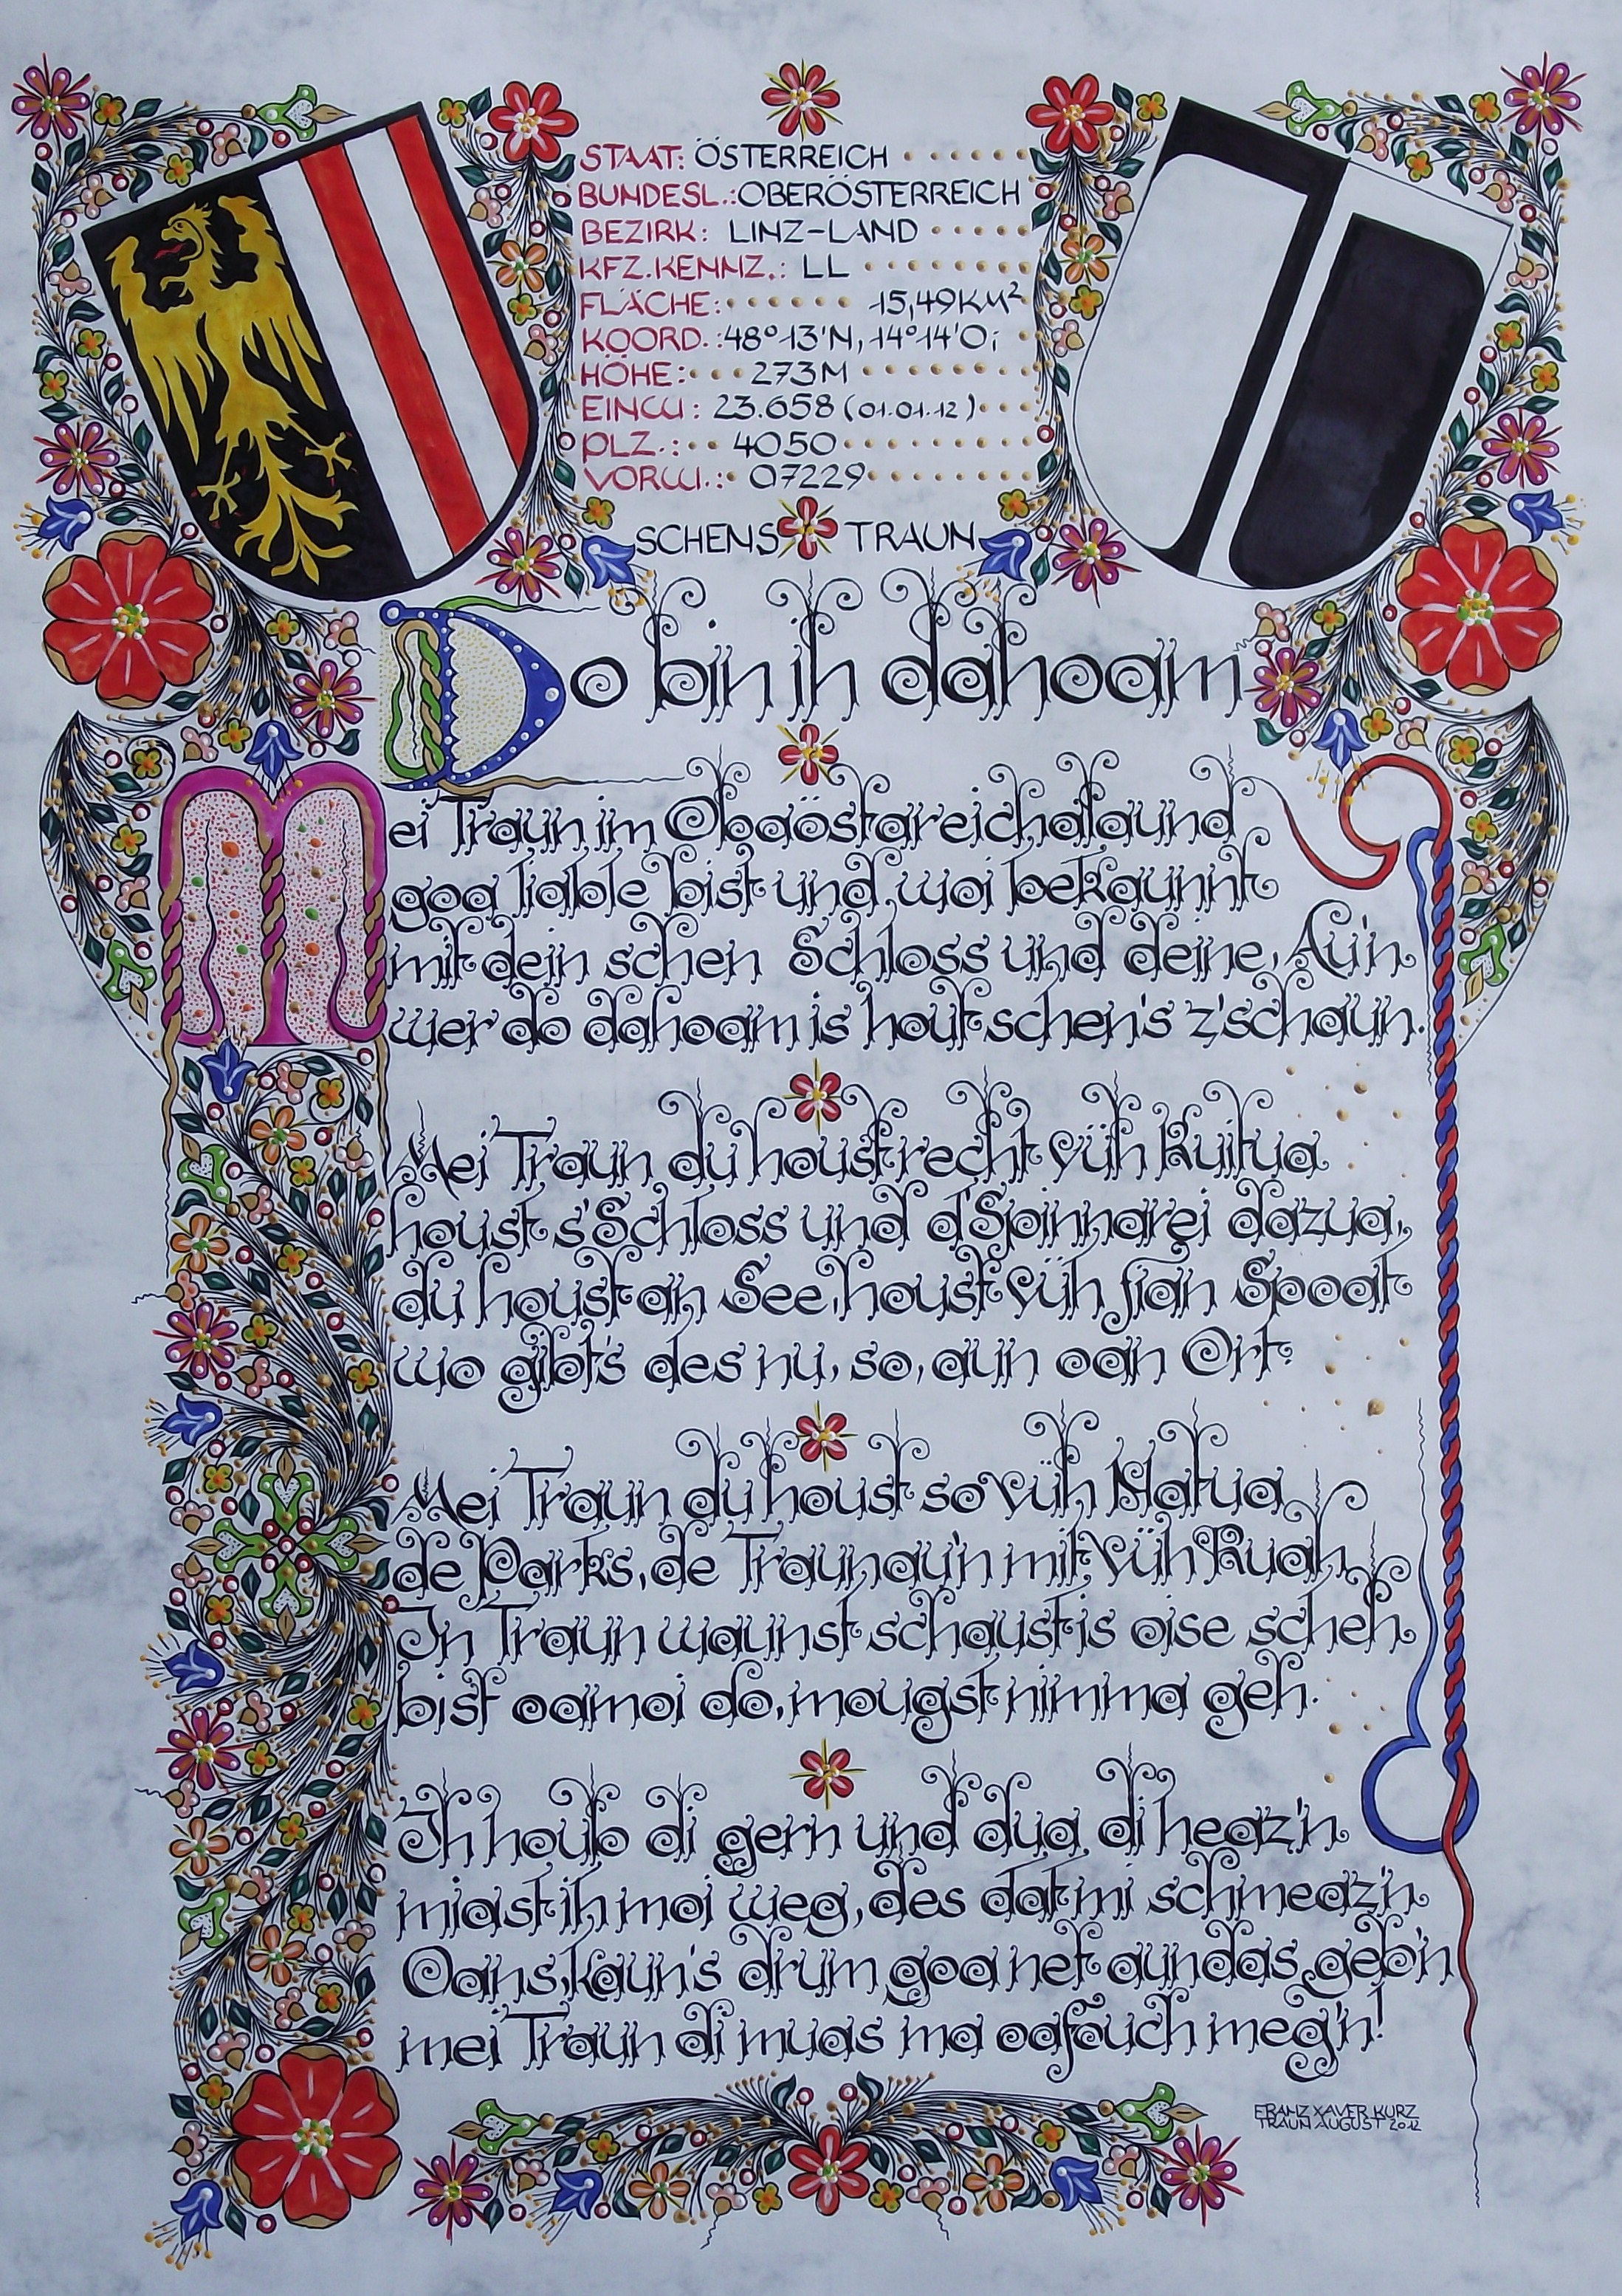 STAAT: ÖSTERREICH
BUNDESL.: OBERÖSTERREICH
BEZIRK: LINZ-LAND
KFZ.KENNZ.: LL
FLÄCHE: 15,49KM²
KOORD.: 48°13'N, 14°14'O;
HÖHE: 273M
EINW: 23.658 (01.01.12)
PLZ.: 4050
VORW.: 07229
SCHENS TRAUN
Do bin ih dahoam
Mei Traun im Obaöstareichalaund
goa liable bist und woi bekaunnt
mit dein schen Schloss und deine Au'n
wer do dahoam is hout schen's z'schaun.
Mei Traun du houst recht vüh Kuitua
houst s'Schloss und d'Spinnarei dazua,
du houst an See, houst vüh fian Spoat
wo gibt's des nu, so, aun oan Ort?
Mei Traun du houst so vüh Natua
de Parks, de Traunau'n mit vüh Ruah,
In Traun waunst schaust is oise scheh
bist oamoi do, mougst nimma geh.
Ih houb di gern und dua di heaz'n
miast ih moi weg, des dat mi schmeaz'n
Oans, kaun's drum goa net aundas geb'n
mei Traun di muas ma oafouch meg'n!
FRANZ XAVER KURZ
TRAUN AUGUST 2012